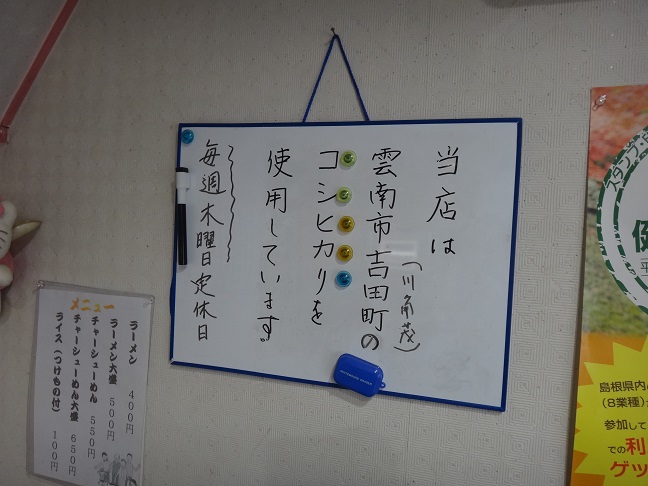 当店は
雲南市吉田町の
(川角茂)
コシヒカリを
使用しています。
毎週木曜日定休日
メニュー
ラーメン 400円
ラーメン大盛 500円
チャーシューめん 550円
チャーシューめん大盛 650円
ライス(つけもの付) 100円
スタンプ
島根県内
(8業種)
参加して
での利
ゲッ